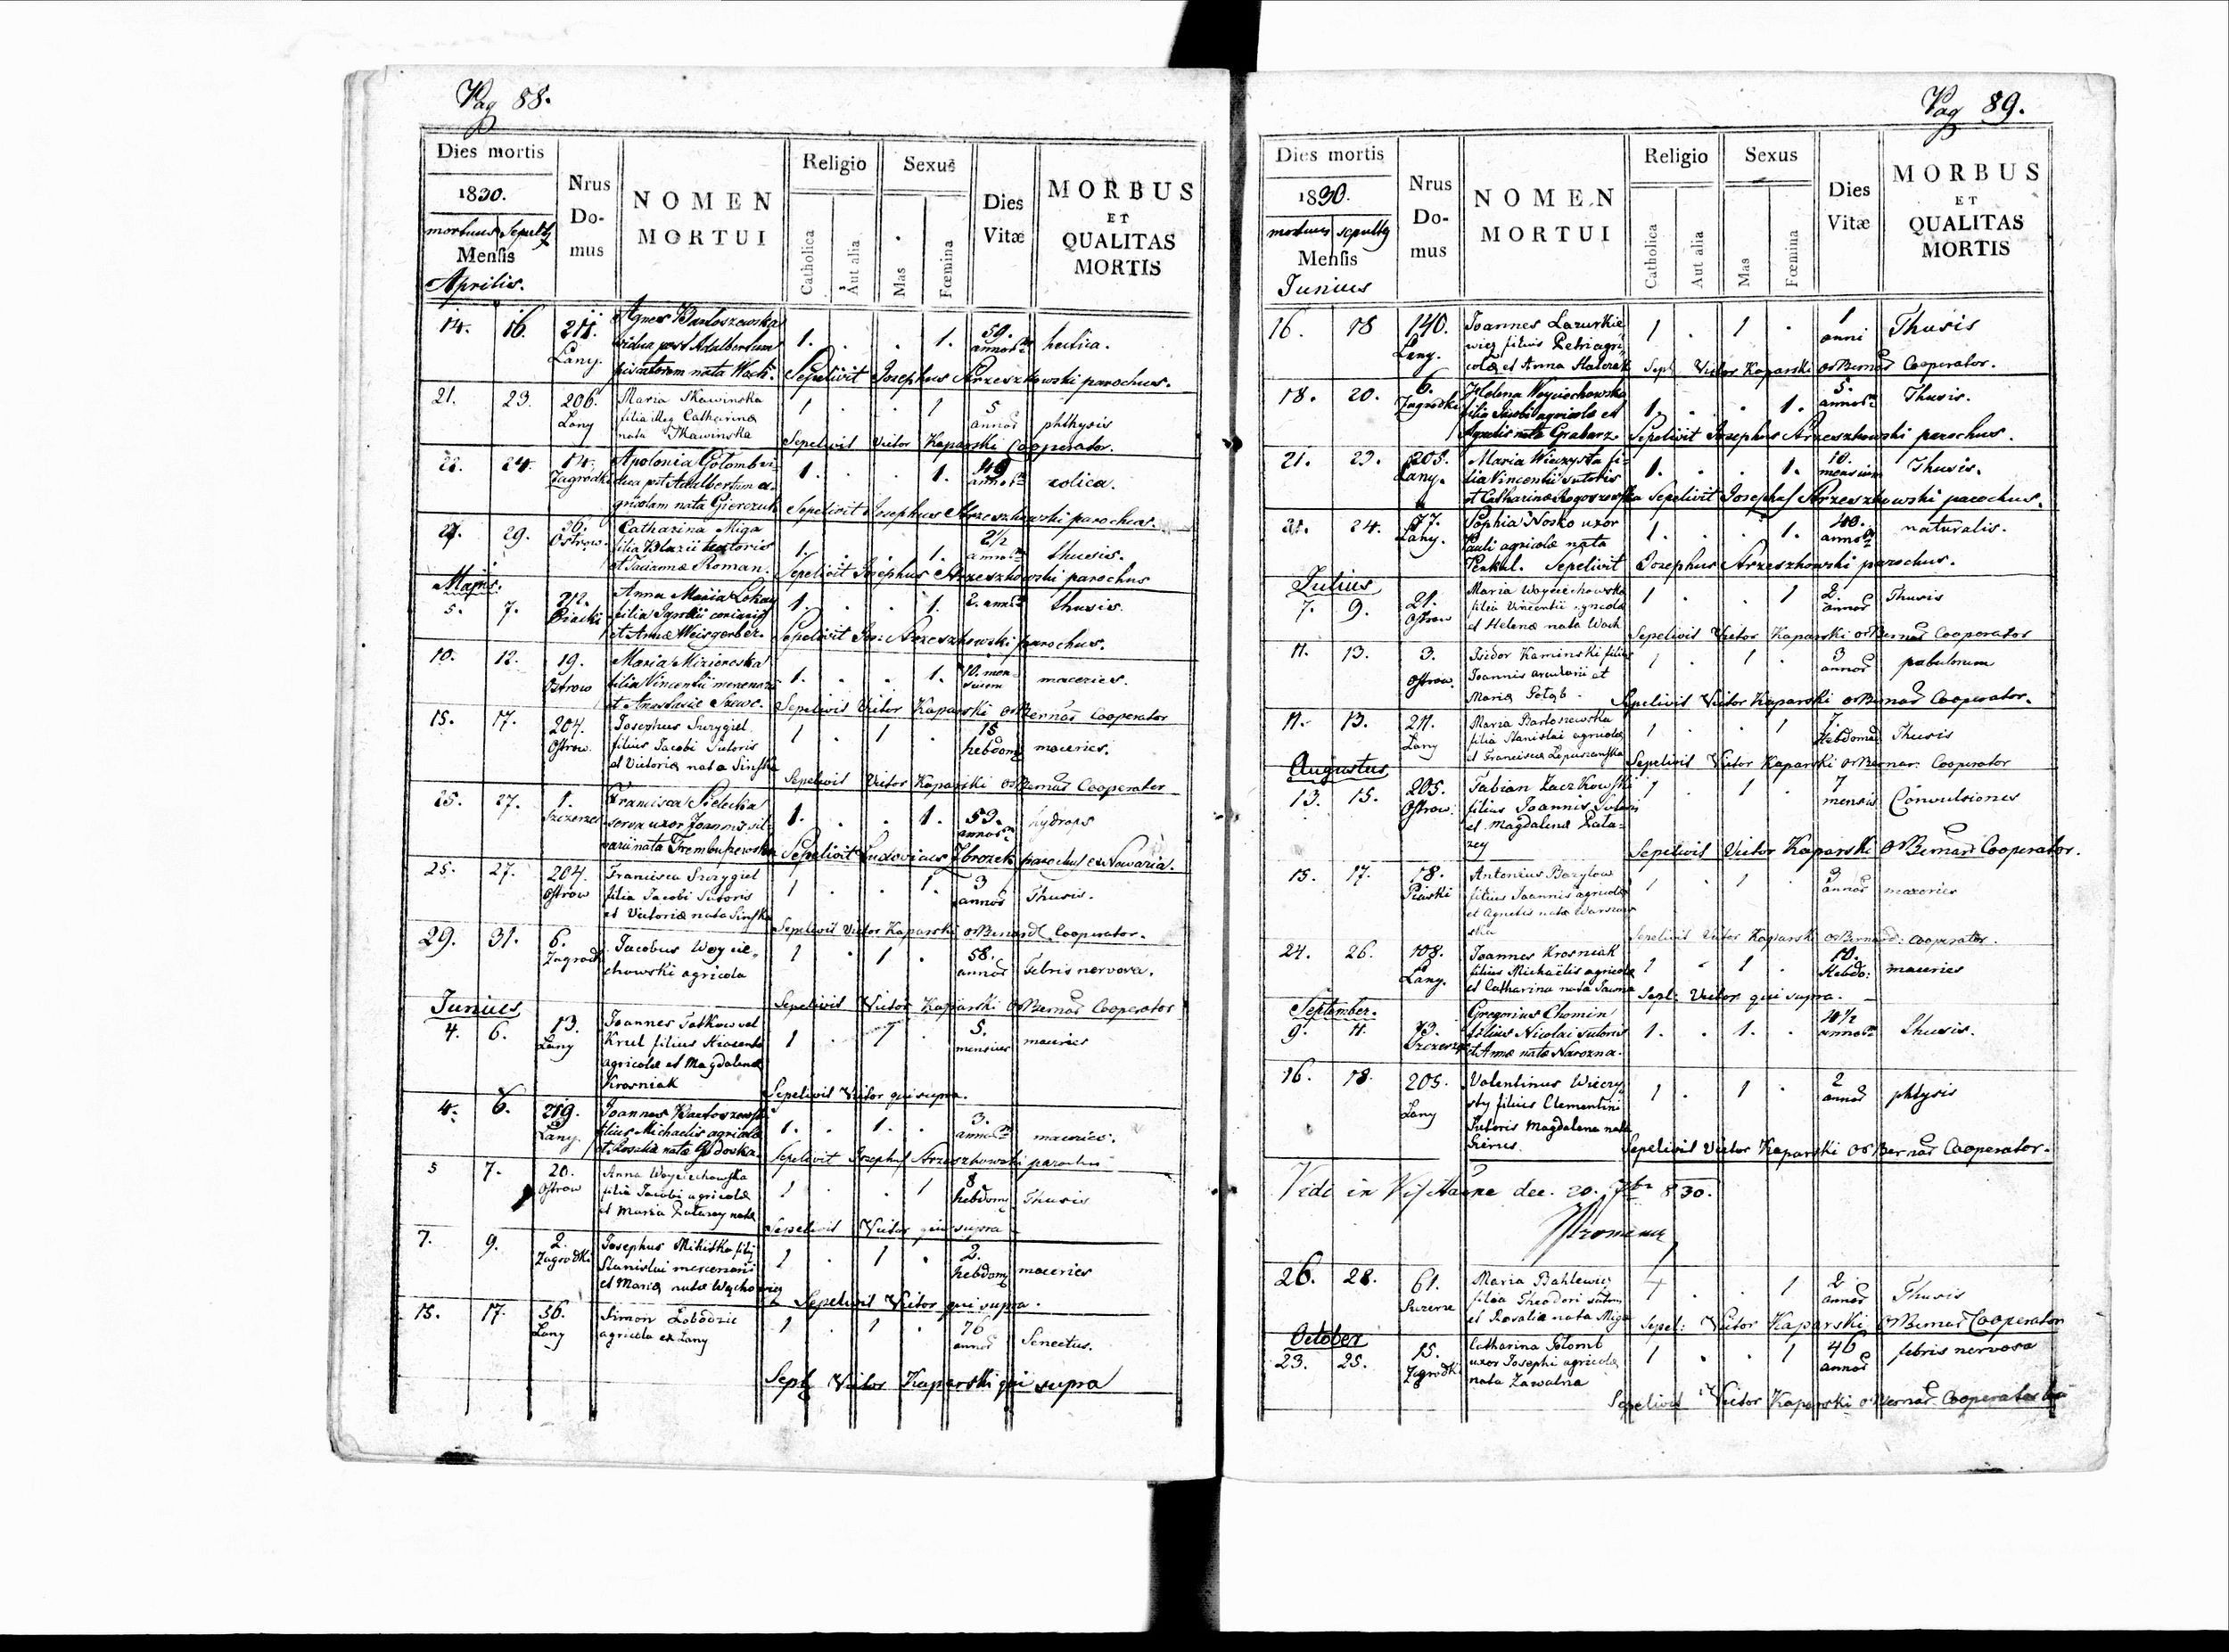 Pag 88.
Dies mortis
1830.
mortuus Sepultq
Mensis
Aprilis.
Nrus Domus
NOMEN MORTUI
Religio
Catholica
Aut alia
Sexus
Mas
Fœmina
Dies Vitæ
MORBUS ET QUALITAS MORTIS
14. 16. 211. Lany. Agnes Bartoszewska vidua post Adalbertum nata 1. . . 1. 50. annor hectica.
Sepelivit Josephus Strzeszkowski parochus.
21. 23. 206. Lany Maria Skawinska filia illeg Catharina nata Skawinska 1 . . 1 5 annor phthysis
Sepelivit Victor Kaparski Cooperator.
22. 24. 14. Zagrodki Apolonia Golomb vidua post Adalbertum agricolam nata Gierczuk 1. . . 1. 49 annor colica.
Sepelivit Josephus Strzeszkowski parochus.
27. 29. 30. Ostrow. Catharina Miga filia Blazii textoris et Taciannæ Roman. 1. . . 1. 2 1/2 annor thussis.
Sepelivit Josephus Strzeszkowski parochus
Majus.
5. 7. 212. Piaski Anna Maria filia coriarii et Annæ Weisgerber. 1. . . 1. 2. annor thusis.
Sepelivit Jos: Strzeszkowski parochus.
10. 12. 19. Ostrow Maria filia Vincentii et Anastasiæ Szewc. 1. . . 1. 10. mensium macries.
Sepelivit Victor Kaparski O Bernar Cooperator
15. 17. 204. Ostrow. Josephus Szczygiel filius Jacobi Sutoris et Victoria nata 1 . 1 . 15 hebdom macries.
Sepelivit Victor Kaparski O Bernar Cooperator
25. 27. 1. Szczerzec Francisca uxor Joannis nata 1. . . 1. 53. annor hydrops
Sepelivit Ludovicus Zbrozek parochus ex Nawaria.
25. 27. 204. Ostrow Francisca Szczygiel filia Jacobi Sutoris et Victoriæ nata 1 . . 1. 3 annor Thusis.
Sepelivit Victor Kaparski O Bernard. Cooperator.
29. 31. 6. Zagrodk Jacobus Woyciechowski agricola 1 . 1 . 58. annor Febris nervosa.
Sepelivit Victor Kaparski O Bernar Cooperator
Junius
4. 6. 13. Lany Joannes vel Krul filius agricolæ et Magdalena Krosniak 1 . 1 . 5. mensium macries
Sepelivit Victor qui supra.
4. 6. 219. Lany. Joannes Bartoszewski filius Michaelis agricolæ et Rosalia nata 1. . 1. . 3. annor macries.
Sepelivit Joseph Strzeszkowski parochus
5 7. 20. Ostrow Anna Woyciechowska filia Jacobi agricolæ et Maria nata 1 . . 1 8 hebdom Thusis
Sepelivit Victor qui supra
7. 9. 2. Zagrodki Josephus filij Stanislai mercenarii et Maria nata 1 . 1 . 2. hebdom macries
Sepelivit Victor qui supra.
15. 17. 56. Lany Simon Lobodzic agricola ex Lany 1 . 1 . 76 annor Senectus.
Sepel Victor Kaparski qui supra
Pag 89.
Dies mortis
1830.
mortuus sepultq
Mensis
Junius
Nrus Domus
NOMEN MORTUI
Religio
Catholica
Aut alia
Sexus
Mas
Fœmina
Dies Vitæ
MORBUS ET QUALITAS MORTIS
16. 18 140. Lany. Joannes Lazurkiewicz filius Petri agricolæ et Anna 1 . 1 . 1 anni Thusis
Sepel Victor Kaparski O Bernar Cooperator.
18. 20. 6. Zagrodki Helena Woyciechowska filia Jacobi agricolæ et Agnetis nata Grabarz. 1. . . 1. 5. annor Thusis.
Sepelivit Josephus Strzeszkowski parochus.
21. 23. 205. Lany. Maria Wieczysta filia Vincentii sutoris et Catharinæ Rogoszewska 1. . . 1. 10. mensium Thusis.
Sepelivit Josephus Strzeszkowski parochus.
21. 24. 77. Lany. Sophia Nosko uxor Pauli agricolæ nata 1. . . 1. 40. annor naturalis.
Sepelivit Josephus Strzeszkowski parochus.
Julius
7. 9. 21. Ostrow Maria Woyciechowska filia Vincentii agricolæ et Helenæ nata Woch 1 . . 1 2 annor Thusis
Sepelivit Victor Kaparski O Bernar Cooperator
11. 13. 3. Ostrow. Isidor Kaminski filius Joannis et Maria Gołąb. 1 . 1 . 3 annor pabulorum
Sepelivit Victor Kaparski O Bernar Cooperator.
11. 13. 211. Lany Maria Bartoszewska filia Stanislai agricolæ et Francisca 1 . . 1 7. Hebdomad Thusis
Sepelivit Victor Kaparski O Bernar. Cooperator
Augustus
13. 15. 205. Ostrow. Fabian Zaczkowski filius Joannis Sutoris et Magdalenæ 1 . 1 . 7 mensis Convulsiones
Sepelivit Victor Kaparski O Bernard Cooperator.
15. 17. 18. Piaski Antonius Bazylow filius Joannis agricolæ et Agnetis nata 1 . 1 . 3 annor macries
Sepelivit Victor Kaparski O Bernard: Cooperator.
24. 26. 108. Lany. Joannes Krosniak filius Michaëlis agricolæ et Catharina nata 1 . 1 . 10. Hebdo: macries
Sepel: Victor qui supra.
September.
9. 11. 73. Szczerzec Gregorius Chomin filius Nicolai sutoris et Annæ nata Narozna. 1. . 1. . 1/2 annor thusis.
16. 18. 205. Lany Valentinus Wieczysty filius Clementini Sutoris Magdalena nata 1 . 1 . 2 annor phtysis
Sepelivit Victor Kaparski O Bernar Cooperator.
Vidi in Visitatione dec. 20. 7br 830.
26. 28. 61. Maria Bahlewicz filia Theodori sutoris et Rosalia nata Miga 1 . . 1 2 annor Thusis
Sepel: Victor Kaparski O Bernar Cooperator
October
23. 25. 15. Zagrodk Catharina Golomb uxor Josephi agricolæ nata Zawalna 1 . . 1 46 annor febris nervosa
Sepelivit Victor Kaparski O Bernar. Cooperator